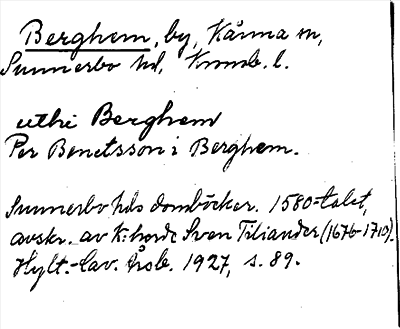 Berghem, by, Kånna sn,
Sunnerbo hd, Kronob. l.
uthi Berghem
Per Benctsson i Berghem.
Sunnerbo hds domböcker. 1580-talet,
avskr. av K:herde Sven Tiliander (1676-1710).
Hylt.-Cav. Årsb. 1927, s. 89.